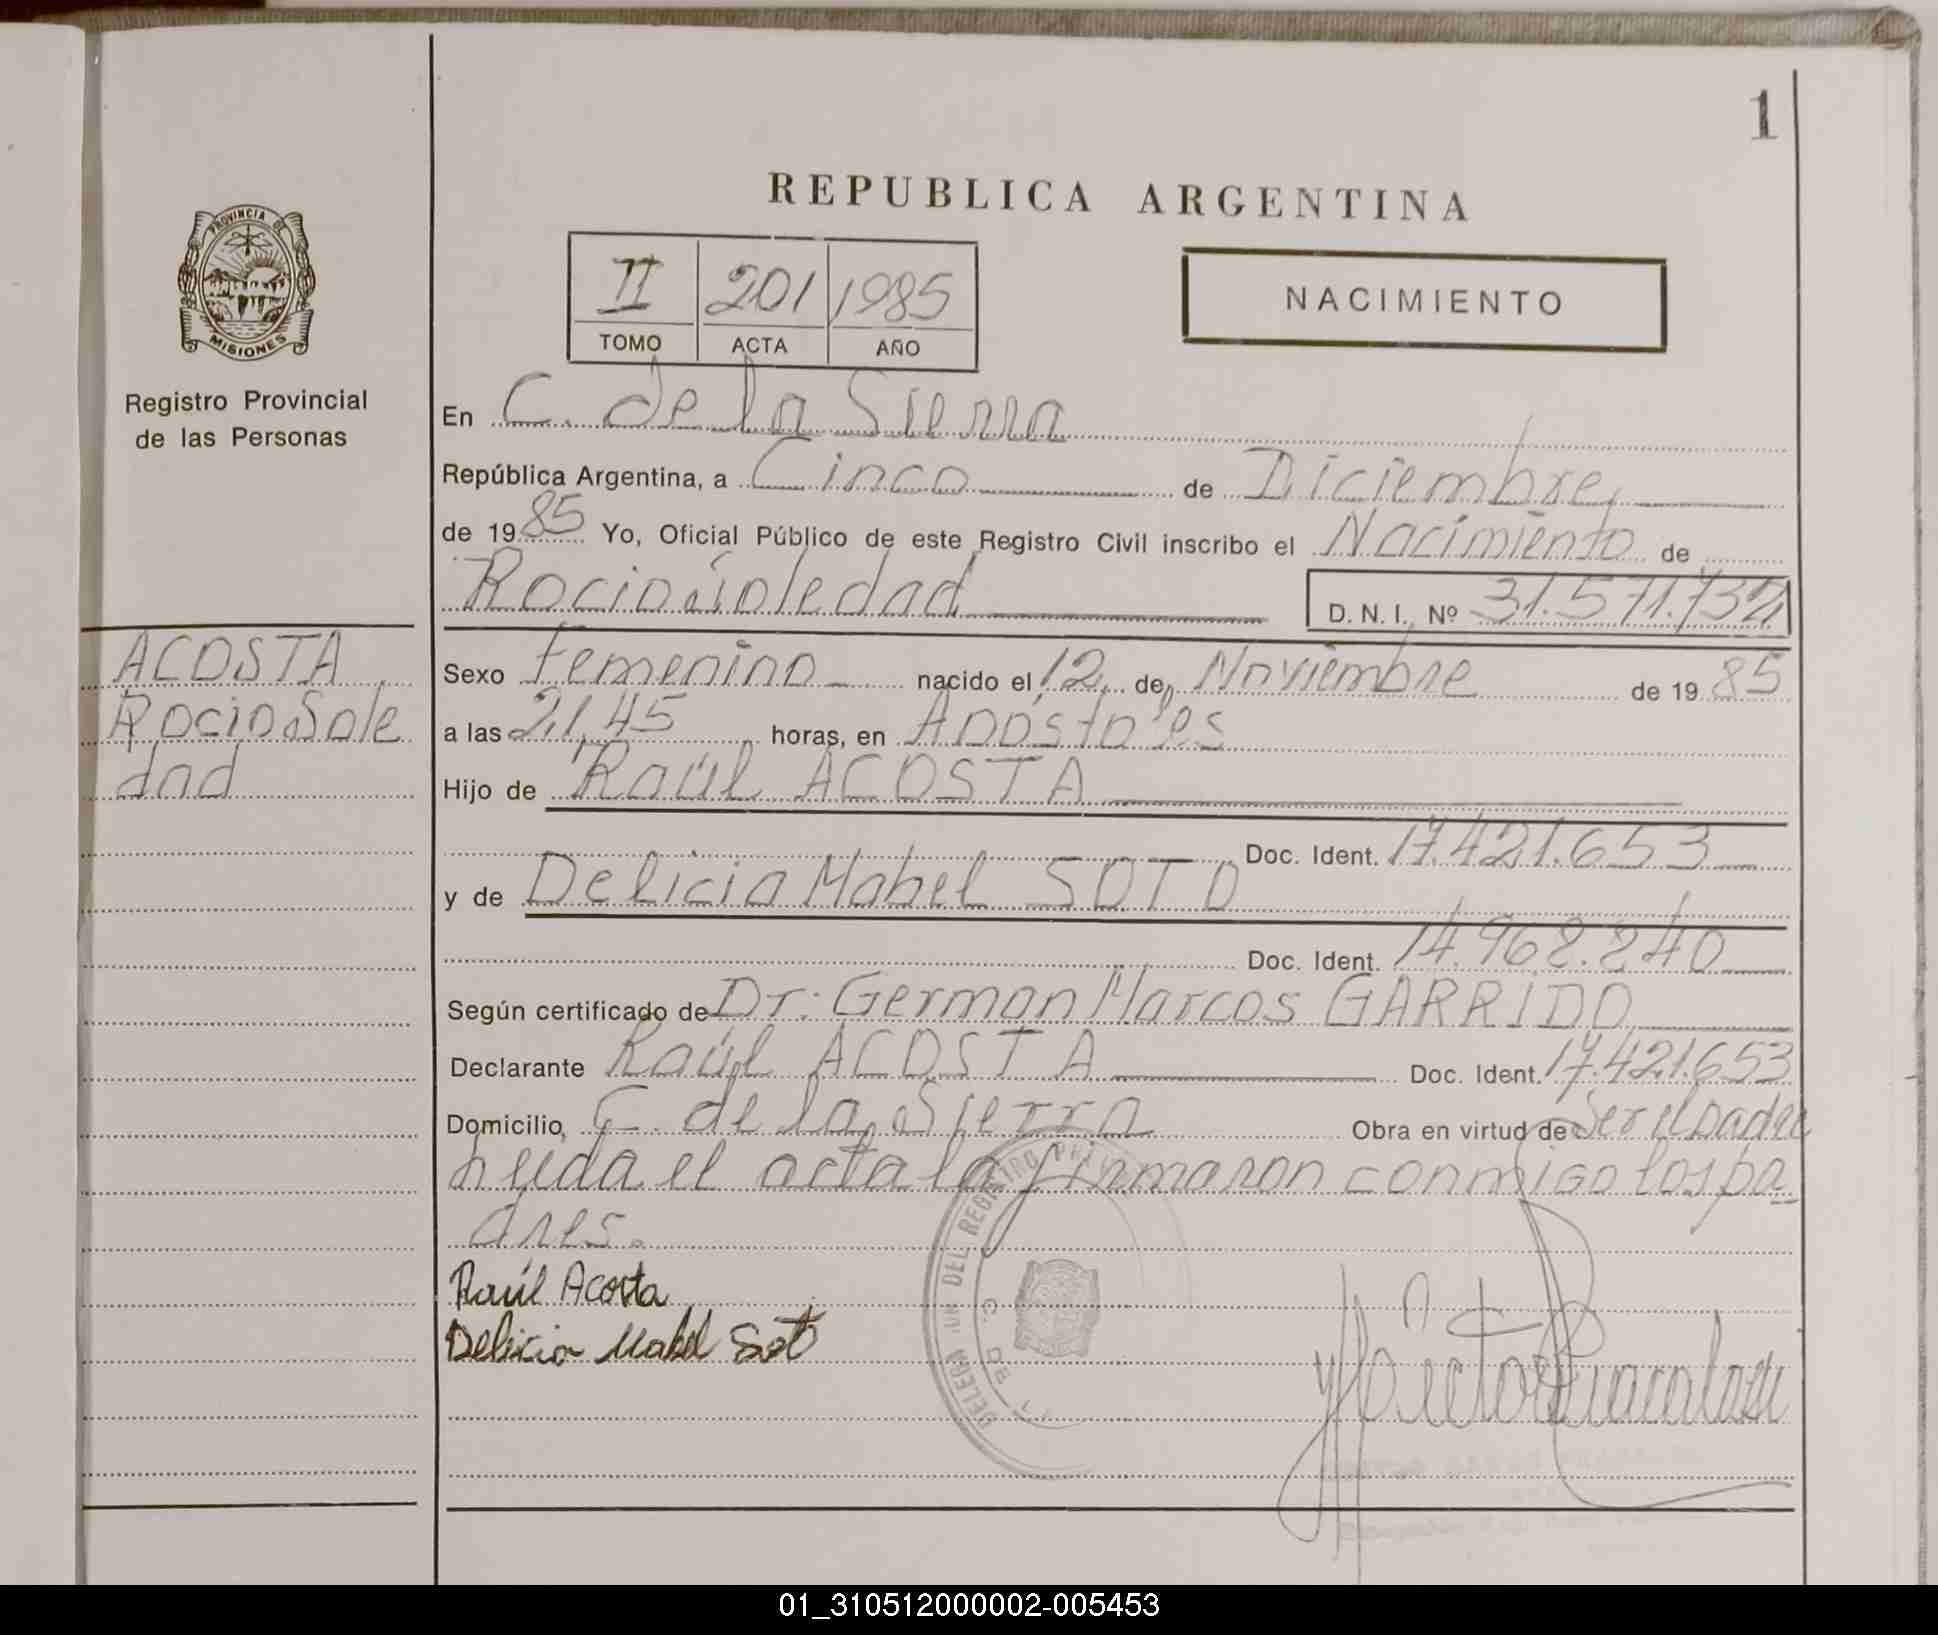 1
REPUBLICA ARGENTINA
PROVINCIA DE
MISIONES
Registro Provincial
de las Personas
II 201 1985
TOMO ACTA AÑO
NACIMIENTO
En C. de la Sierra
República Argentina, a Cinco de Diciembre,
de 1985 Yo, Oficial Público de este Registro Civil inscribo el Nacimiento de
Rocio Soledad D. N. I. Nº 31.571.732
ACOSTA
Rocio Sole
dad
Sexo Femenino nacido el 12 de Noviembre de 1985
a las 21,45 horas, en Apóstoles
Hijo de Raúl ACOSTA
Doc. Ident. 17.421.653
y de Delicia Mabel SOTO
Doc. Ident. 14.968.240
Según certificado de Dr: German Marcos GARRIDO
Declarante Raúl ACOSTA Doc. Ident. 17.421.653
Domicilio, C. de la Sierra Obra en virtud de Ser el padre
leida el acta la firmaron conmigo los pa
dres.
Raúl Acosta
Delicia Mabel Soto
DEL REGISTRO
C. DE
01_310512000002-005453